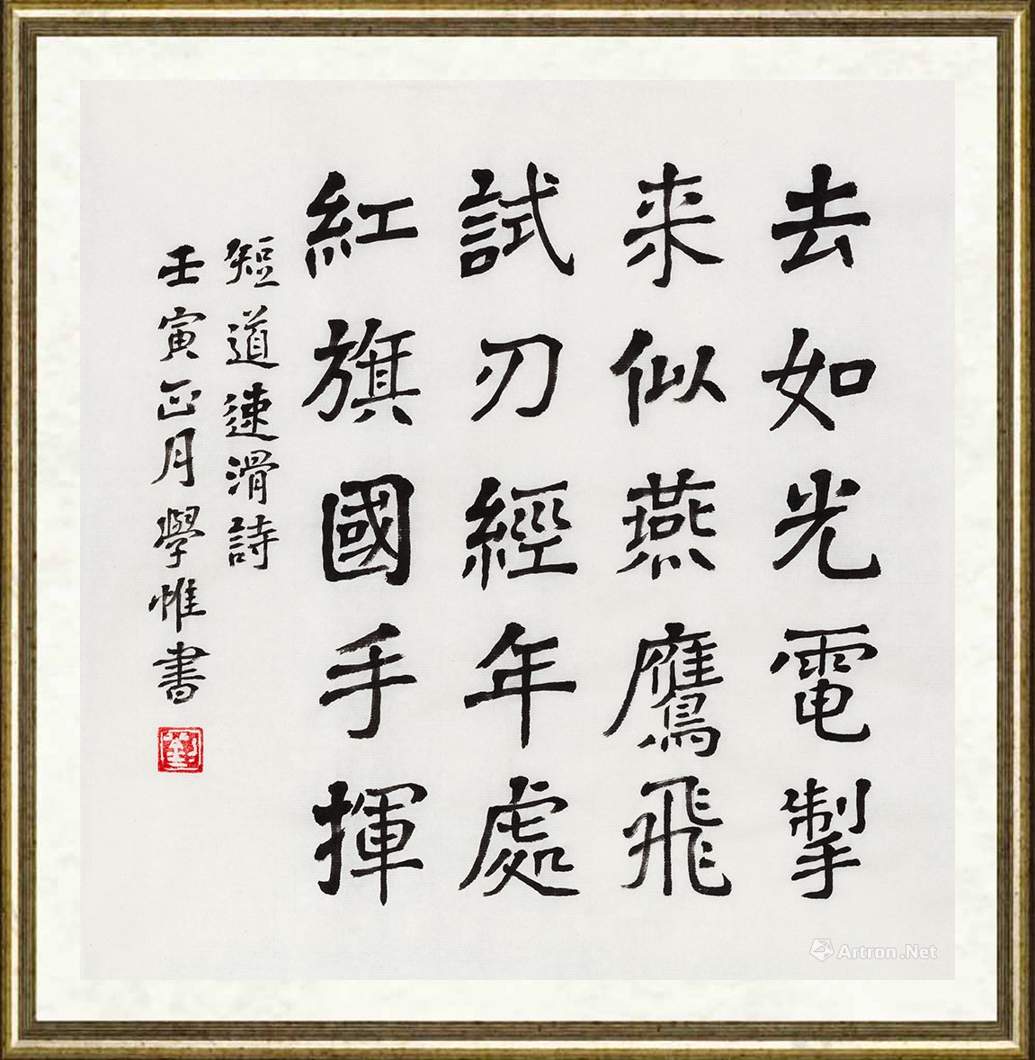 去如光電掣
来似燕鷹飛
試刃經年處
紅旗國手揮
短道速滑詩
壬寅正月學惟書
Artron.Net